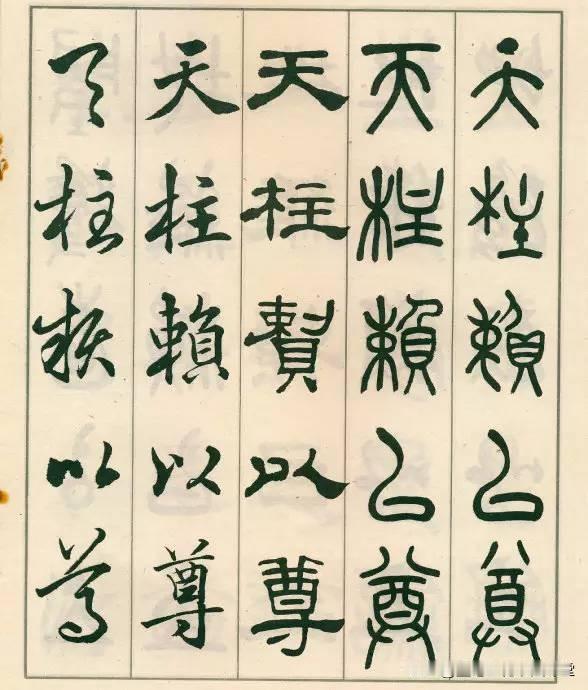 天柱賴以尊
天柱賴以尊
天柱賴以尊
天柱賴以尊
天柱賴以尊